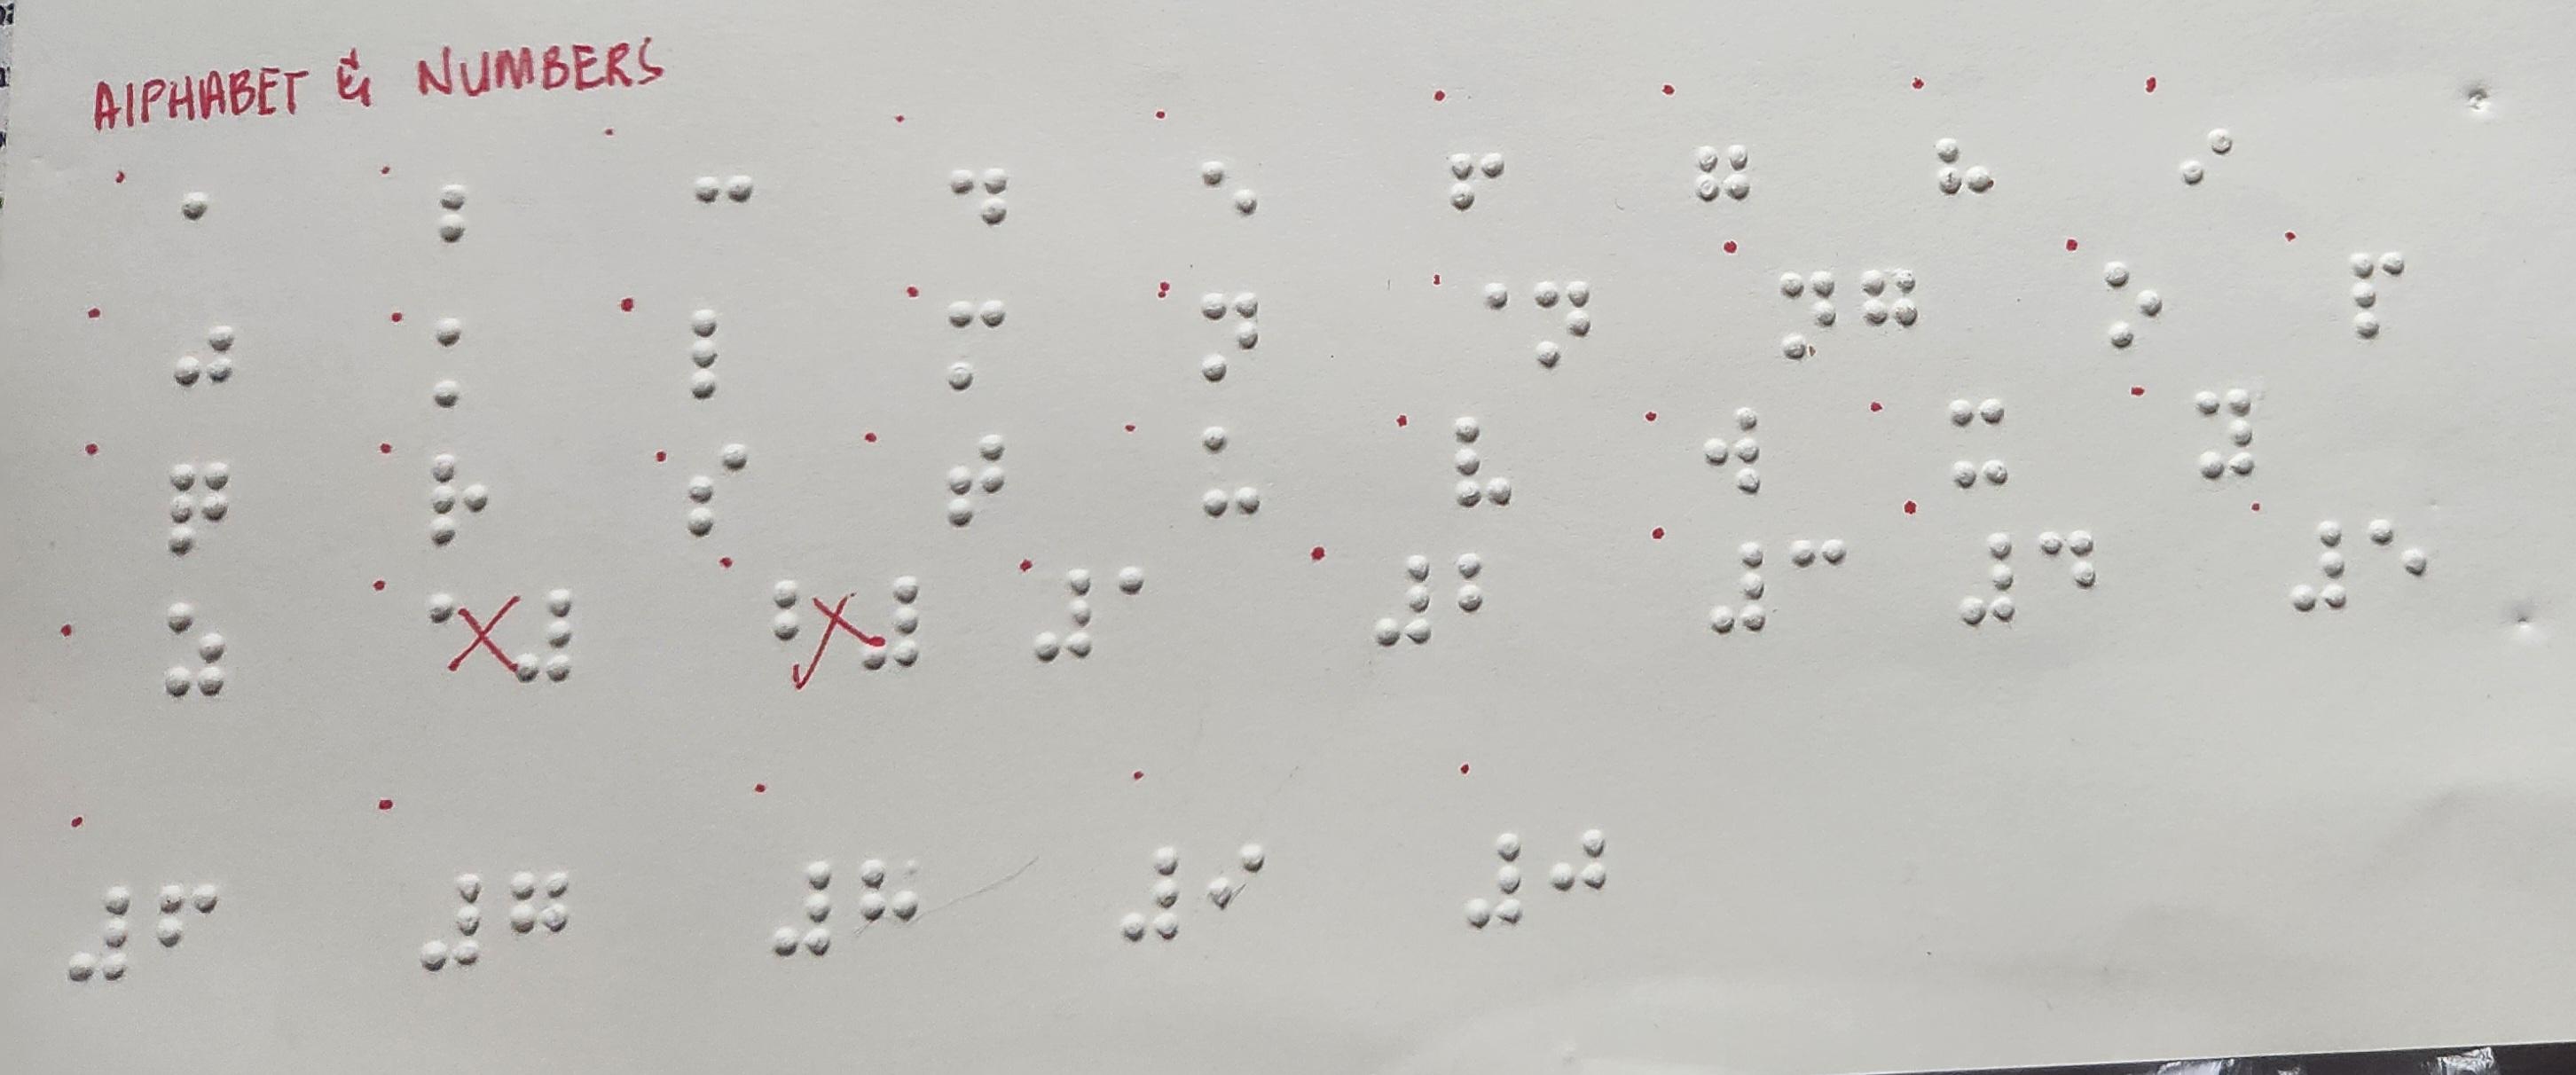 AlPHABET & NUMBERS
⠁ ⠃ ⠉ ⠙ ⠑ ⠋ ⠛ ⠓ ⠊
⠚ ⠅ ⠇ ⠍ ⠝ ⠈⠝ ⠝⠛ ⠕ ⠏
⠟ ⠗ ⠎ ⠞ ⠥ ⠧ ⠺ ⠭ ⠽
⠵ ⠁ ⠼ ⠃ ⠼ ⠼⠁ ⠼⠃ ⠼⠉ ⠼⠙ ⠼⠑
⠼⠋ ⠼⠛ ⠼⠓ ⠼⠊ ⠼⠚